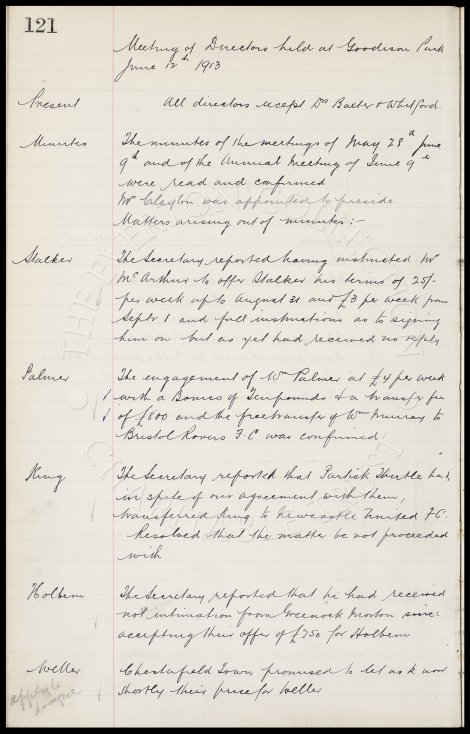 121
Meeting of Directors held at Goodison Park
June 12th 1913
Present All directors except Dr Baxter & Whitford.
Minutes The minutes of the meetings of May 28th June
9th and of the Annual Meeting of June 9th
were read and confirmed
Mr Clayton was appointed to preside
Matters arising out of minutes:-
Stalker The Secretary reported having instructed Mr
McArthur to offer Stalker his terms of 25/-
per week up to August 31 and £3 per week from
Septr 1 and full instructions as to signing
him on but as yet had received no reply
Palmer The engagement of Wm Palmer at £4 per week
with a Bonus of Ten pounds & a transfer fee
of £800 and the free transfer of Wm Murray to
Bristol Rovers F.C was confirmed
King The Secretary reported that Partick Thistle had,
in spite of our agreement with them,
transferred King to Newcastle United F.C.
Resolved that the matter be not proceeded
with
Holbem The Secretary reported that he had received
not intimation from Greenock Morton since
accepting their offer of £350 for Holbem
Weller Chesterfield Town promised to let us know
shortly their price for Weller
apply to
League